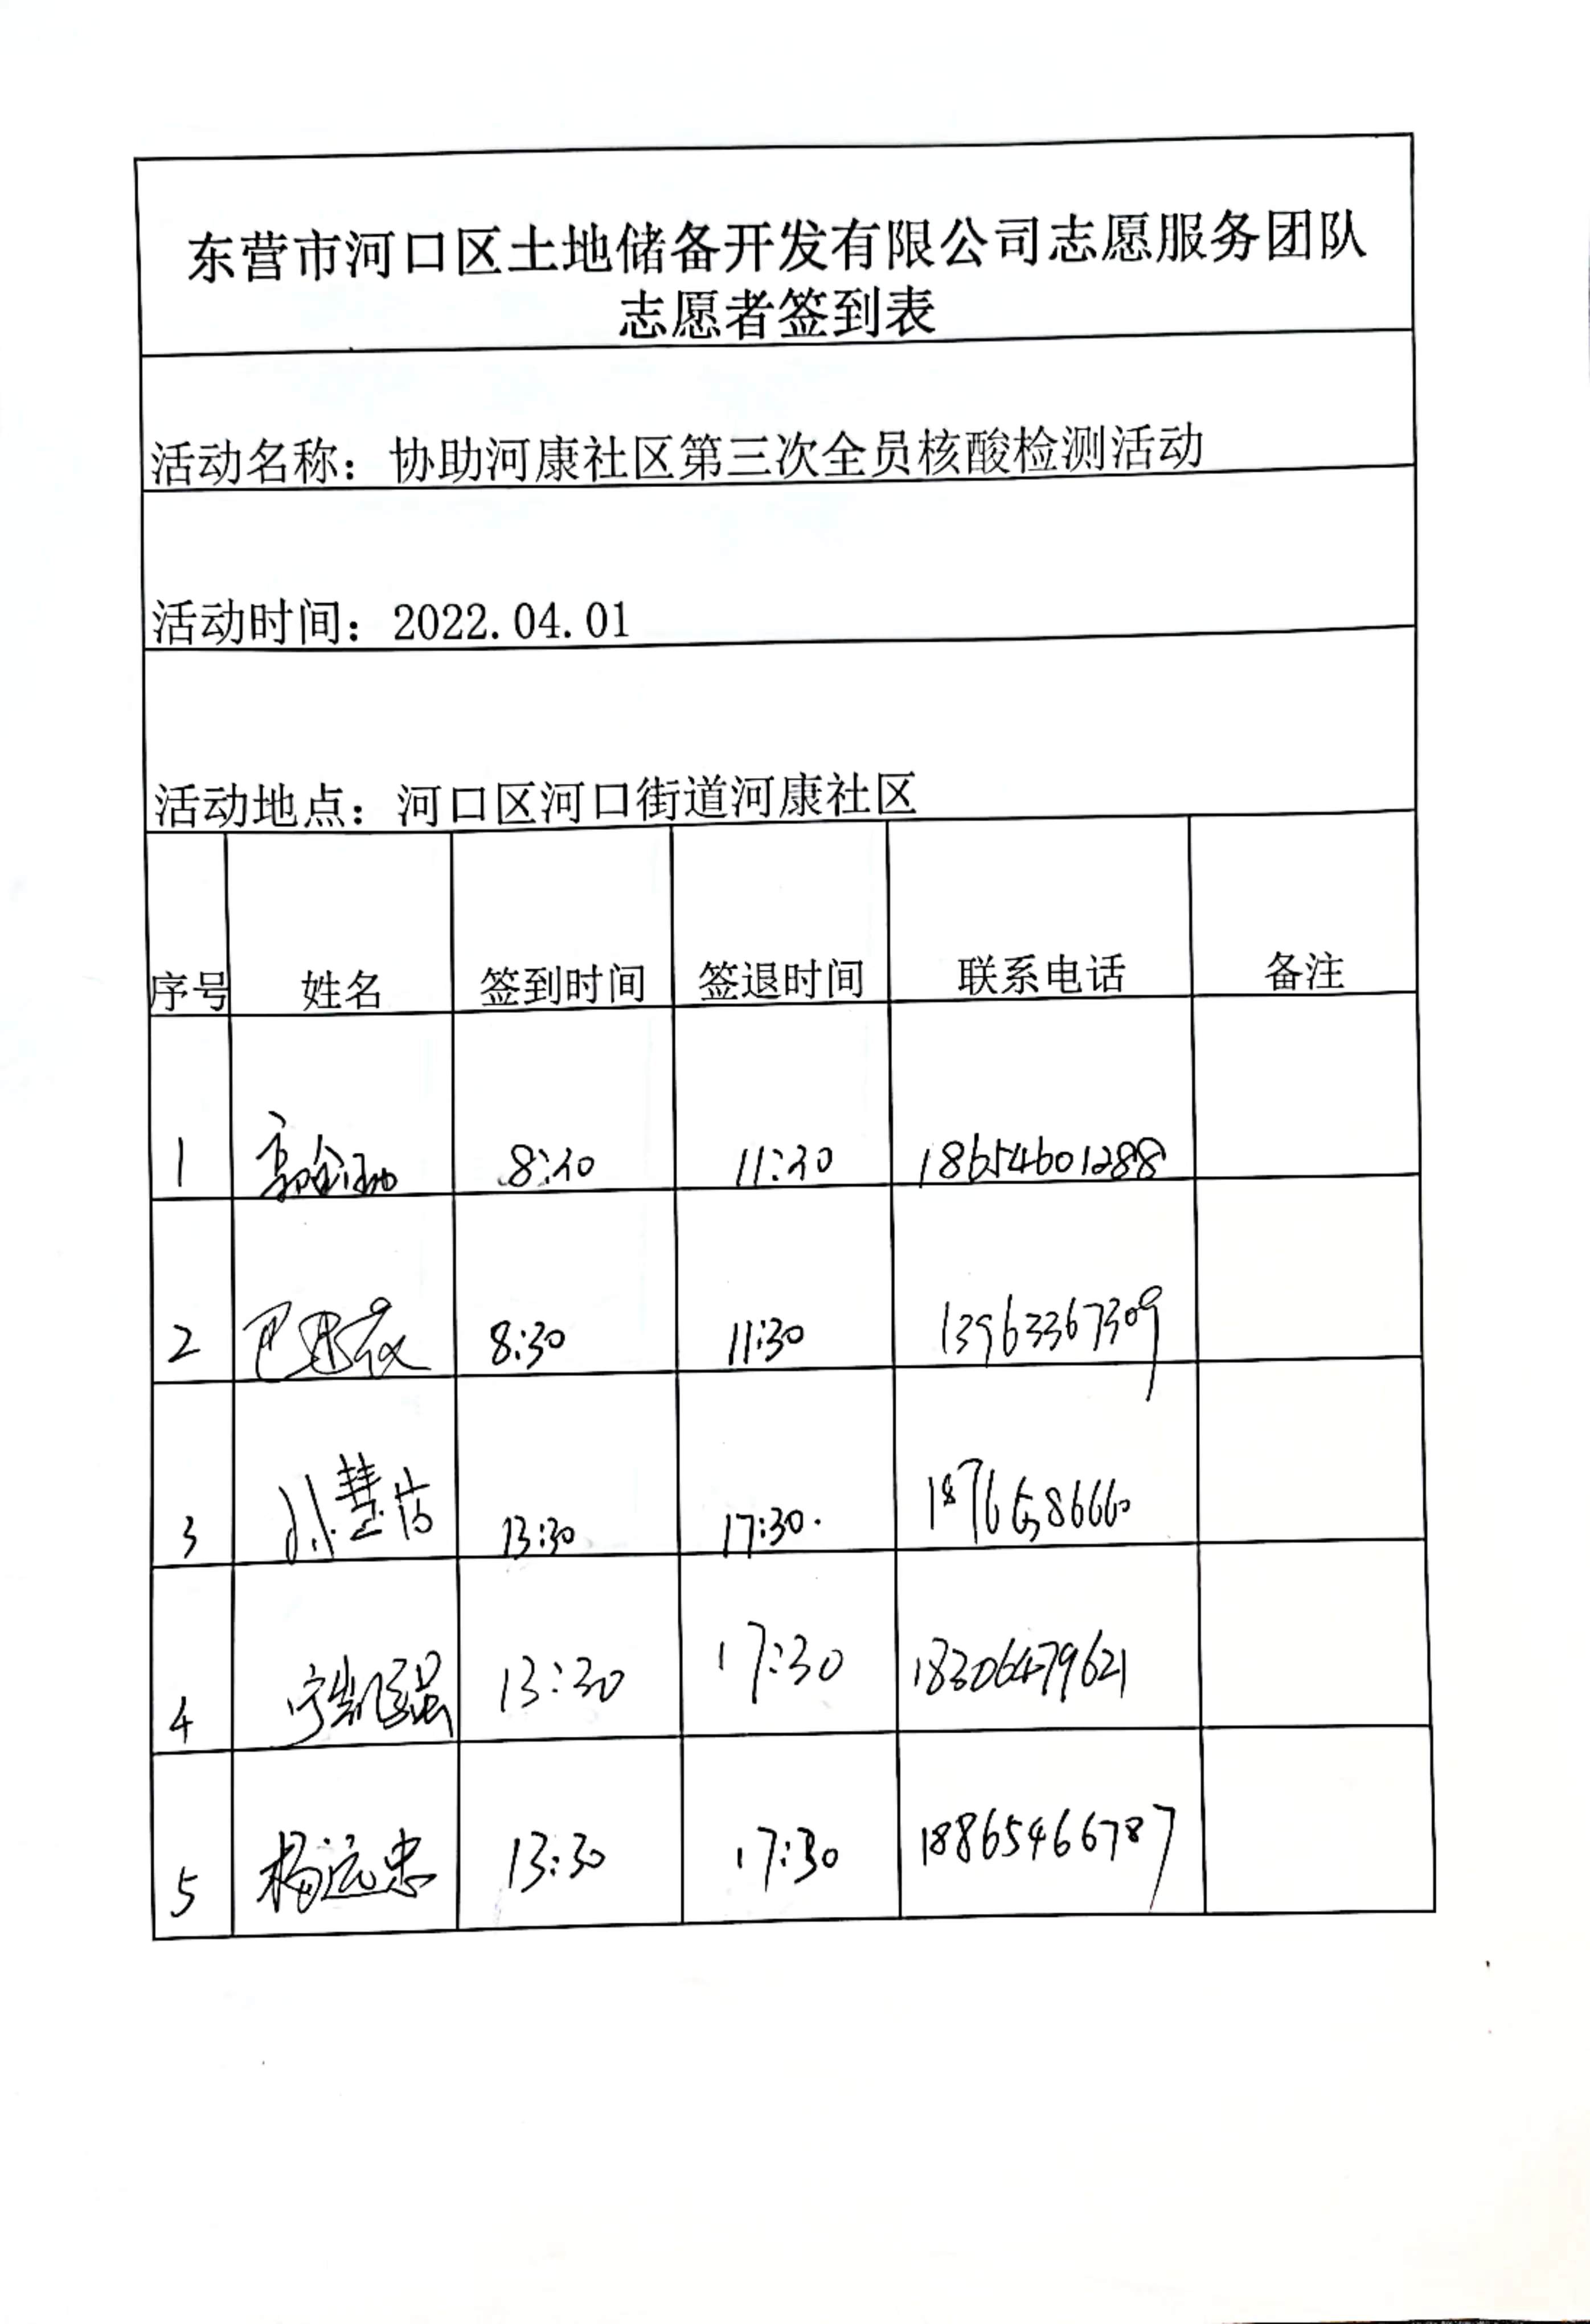 东营市河口区土地储备开发有限公司志愿服务团队
志愿者签到表
活动名称：协助河康社区第三次全员核酸检测活动
活动时间：2022.04.01
活动地点：河口区河口街道河康社区
序号 姓名 签到时间 签退时间 联系电话 备注
1 8:30 11:30 18654601288
2 8:30 11:30 13963367309
3 孙慧洁 13:30 17:30.
4 宁凯强 13:30 17:30 18306479621
5 杨远忠 13:30 17:30 18865466787